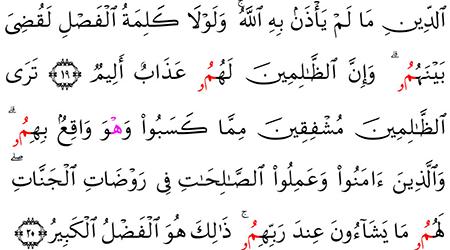 ٱلدِّينِ مَا لَمْ يَأْذَنۢ بِهِ ٱللَّهُۚ وَلَوْلَا كَلِمَةُ ٱلْفَصْلِ لَقُضِىَ
بَيْنَهُمُۥۗ وَإِنَّ ٱلظَّٰلِمِينَ لَهُمُۥ عَذَابٌ أَلِيمٌ ۝١٩ تَرَى
ٱلظَّٰلِمِينَ مُشْفِقِينَ مِمَّا كَسَبُوا۟ وَهْوَ وَاقِعٌۢ بِهِمُۥۗ
وَٱلَّذِينَ ءَامَنُوا۟ وَعَمِلُوا۟ ٱلصَّٰلِحَٰتِ فِى رَوْضَاتِ ٱلْجَنَّاتِۖ
لَهُمُۥ مَا يَشَآءُونَ عِندَ رَبِّهِمُۥۚ ذَٰلِكَ هُوَ ٱلْفَضْلُ ٱلْكَبِيرُ ۝٢٠